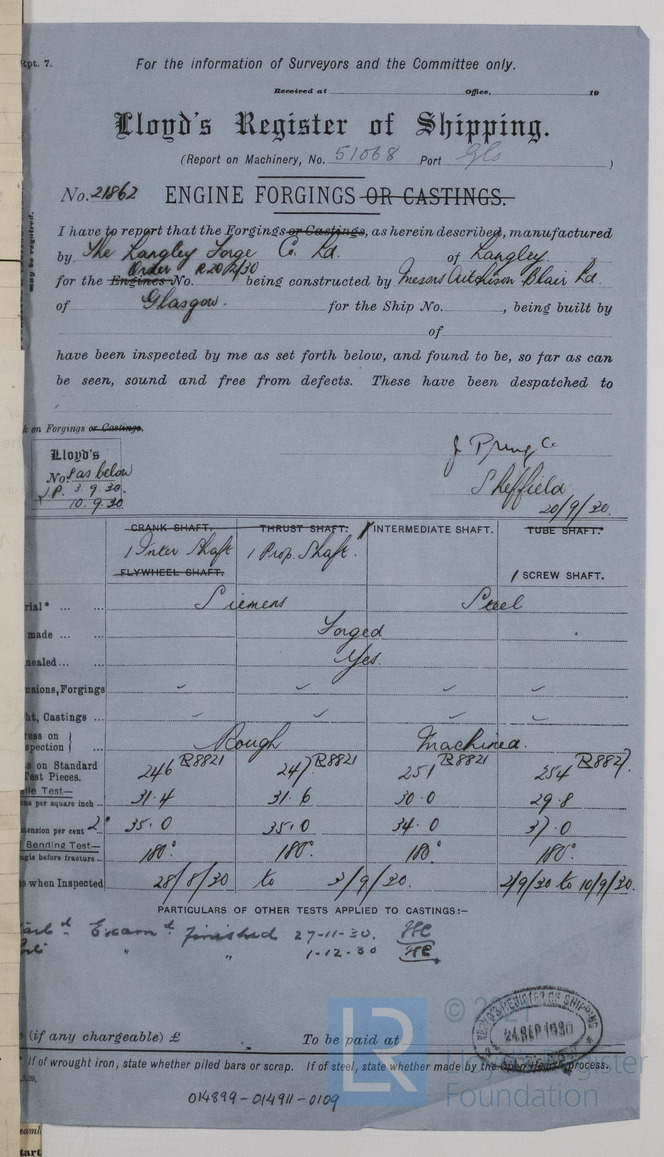 Rpt. 7.
For the information of Surveyors and the Committee only.
Received at Office, 19
Lloyd's Register of Shipping.
(Report on Machinery, No. 51068 Port Gls )
No. 21862 ENGINE FORGINGS OR CASTINGS.
may be required.
I have to report that the Forgings or Castings, as herein described, manufactured
by The Langley Forge Co. Ld. of Langley.
Order R20/2/30
for the Engines No. being constructed by Messrs Aitchison Blair Ld.
of Glasgow. for the Ship No. , being built by
of
have been inspected by me as set forth below, and found to be, so far as can
be seen, sound and free from defects. These have been despatched to
on Forgings or Castings.
Lloyd's
No. as below
J.P. 3.9.30.
10.9.30
Sheffield
20/9/30.
CRANK SHAFT. THRUST SHAFT. INTERMEDIATE SHAFT. TUBE SHAFT.
1 Inter Shaft 1 Prop. Shaft.
FLYWHEEL SHAFT. / SCREW SHAFT.
rial* ... ... Siemens Steel
made ... ... Forged
nealed ... ... Yes.
nsions, Forgings
ht, Castings ...
ress on
spection ... Rough Machined.
s on Standard 246 R8821 247 R8821 251 R8821 254 R8827.
Test Pieces.
ile Test—
ons per square inch ... 31.4 31.6 30.0 29.8
tension per cent 2" 35.0 35.0 34.0 37.0
Bending Test—
ngle before fracture ... 180° 180° 180° 180°
s when Inspected 28/8/30 to 3/9/30. 2/9/30 to 10/9/30.
PARTICULARS OF OTHER TESTS APPLIED TO CASTINGS:—
Examd. finished 27-11-30.
" " 1-12-30
LLOYD'S REGISTER OF SHIPPING
24 SEP 1930
(if any chargeable) £ To be paid at
* If of wrought iron, state whether piled bars or scrap. If of steel, state whether made by the Open Hearth process.
014899-014911-0109
LR
Lloyd's Register
Foundation
eaml
tart